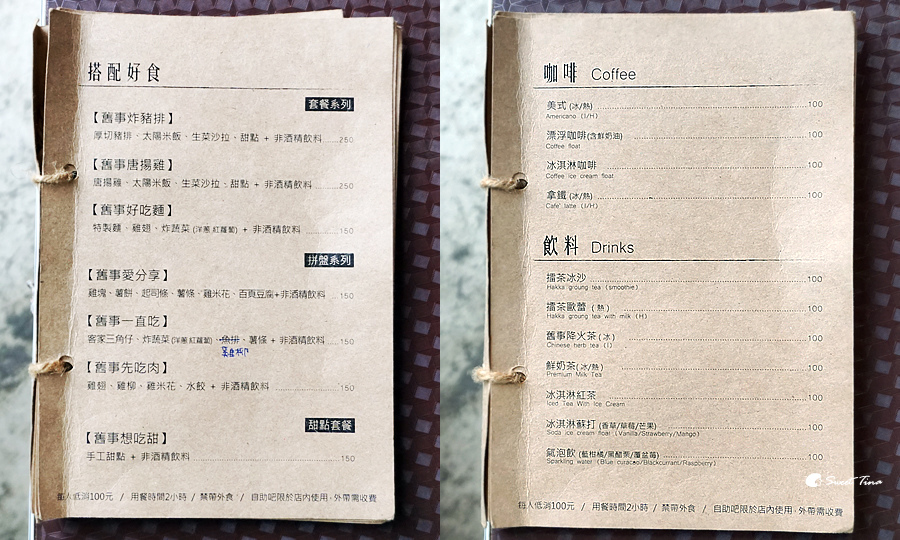 搭配好食
套餐系列
【舊事炸豬排】
厚切豬排、太陽米飯、生菜沙拉、甜點 + 非酒精飲料......250
【舊事唐揚雞】
唐揚雞、太陽米飯、生菜沙拉、甜點 + 非酒精飲料......250
【舊事好吃麵】
特製麵、雞翅、炸蔬菜 (洋蔥 紅蘿蔔) + 非酒精飲料......150
拼盤系列
【舊事愛分享】
雞塊、薯餅、起司條、薯條、雞米花、百頁豆腐+非酒精飲料...150
【舊事一直吃】
客家三角仔、炸蔬菜 (洋蔥 紅蘿蔔)、魚排、薯條 + 非酒精飲料...150
雞柳
【舊事先吃肉】
雞翅、雞柳、雞米花、水餃 + 非酒精飲料......150
甜點套餐
【舊事想吃甜】
手工甜點 + 非酒精飲料......150
每人低消100元 / 用餐時間2小時 / 禁帶外食 / 自助吧限於店內使用,外帶需收費
咖啡 Coffee
美式 (冰/熱)......100
Americano (I/H)
漂浮咖啡(含鮮奶油)......100
Coffee float
冰淇淋咖啡......100
Coffee ice cream float
拿鐵 (冰/熱)......100
Cafe' latte (I/H)
飲料 Drinks
擂茶冰沙......100
Hakka groung tea (smoothie)
擂茶歐蕾 (熱)......100
Hakka groung tea with milk (H)
舊事降火茶 (冰)......100
Chinese herb tea (I)
鮮奶茶 (冰/熱)......100
Premium Milk Tea
冰淇淋紅茶......100
Iced Tea With Ice Cream
冰淇淋蘇打 (香草/草莓/芒果)......100
Soda ice cream float (Vanilla/Strawberry/Mango)
氣泡飲 (藍柑橘/黑醋栗/覆盆莓)......100
Sparkling water (Blue curacao/Blackcurrant/Raspberry)
每人低消100元 / 用餐時間2小時 / 禁帶外食 / 自助吧限於店內使用,外帶需收費
Sweet Tina